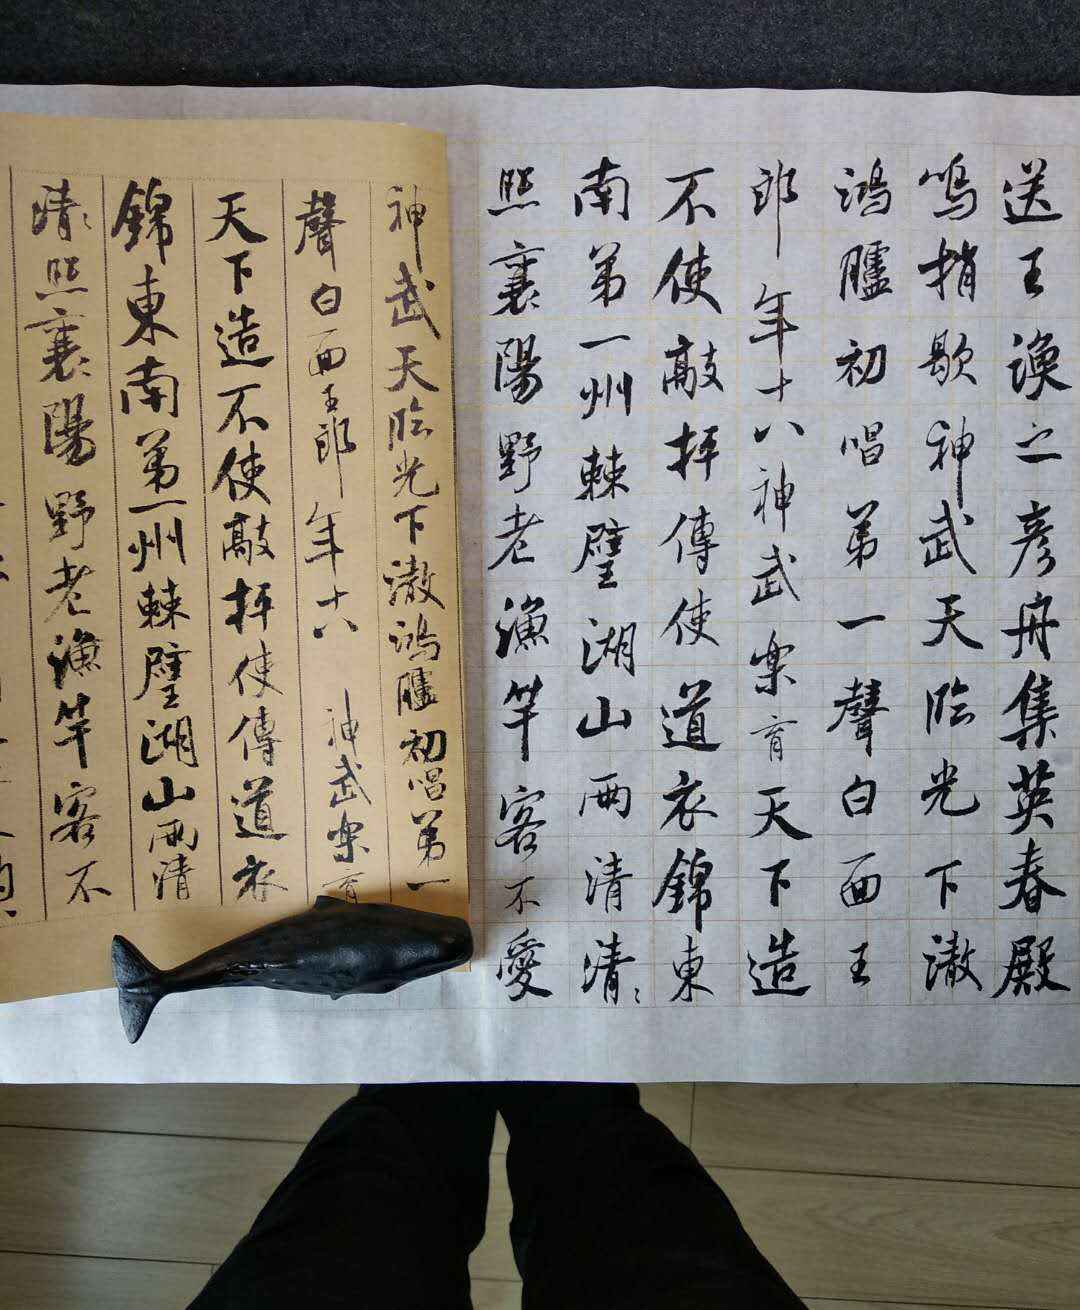 送王渙之彥舟集英春殿
鳴捎歇神武天臨光下澈
鴻臚初唱第一聲白面王
郎年十八神武樂育天下造
不使敲抨傳使道衣錦東
南第一州棘壁湖山兩清清:
照襄陽野老漁竿客不愛
神武天臨光下澈鴻臚初唱第一
聲白面王郎年十八 神武樂育
天下造不使敲抨使傳道衣
錦東南第一州棘壁湖山兩清
清:照襄陽野老漁竿客不